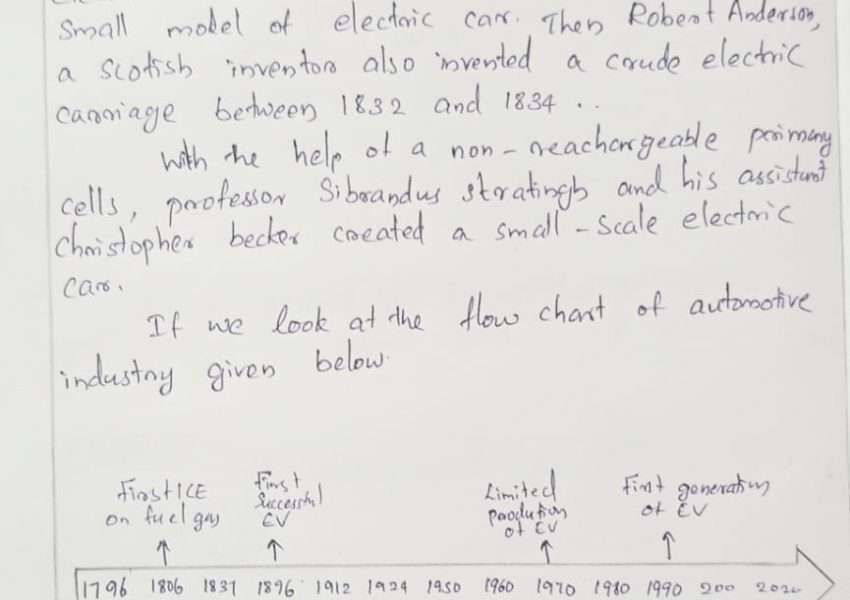 Small model of electric car. Then Robert Anderson,
a Scotish inventor also invented a crude electric
carriage between 1832 and 1834 ..
With the help of a non-reachargeable primary
cells, professor Sibrandus stratingh and his assistant
Christopher becker created a small-scale electric
car.
If we look at the flow chart of automotive
industry given below.
First ICE
on fuel gas
First
Successful
EV
Limited
prodution
of EV
First generation
of EV
1796 1806 1837 1896 1912 1924 1950 1960 1970 1980 1990 200 2020